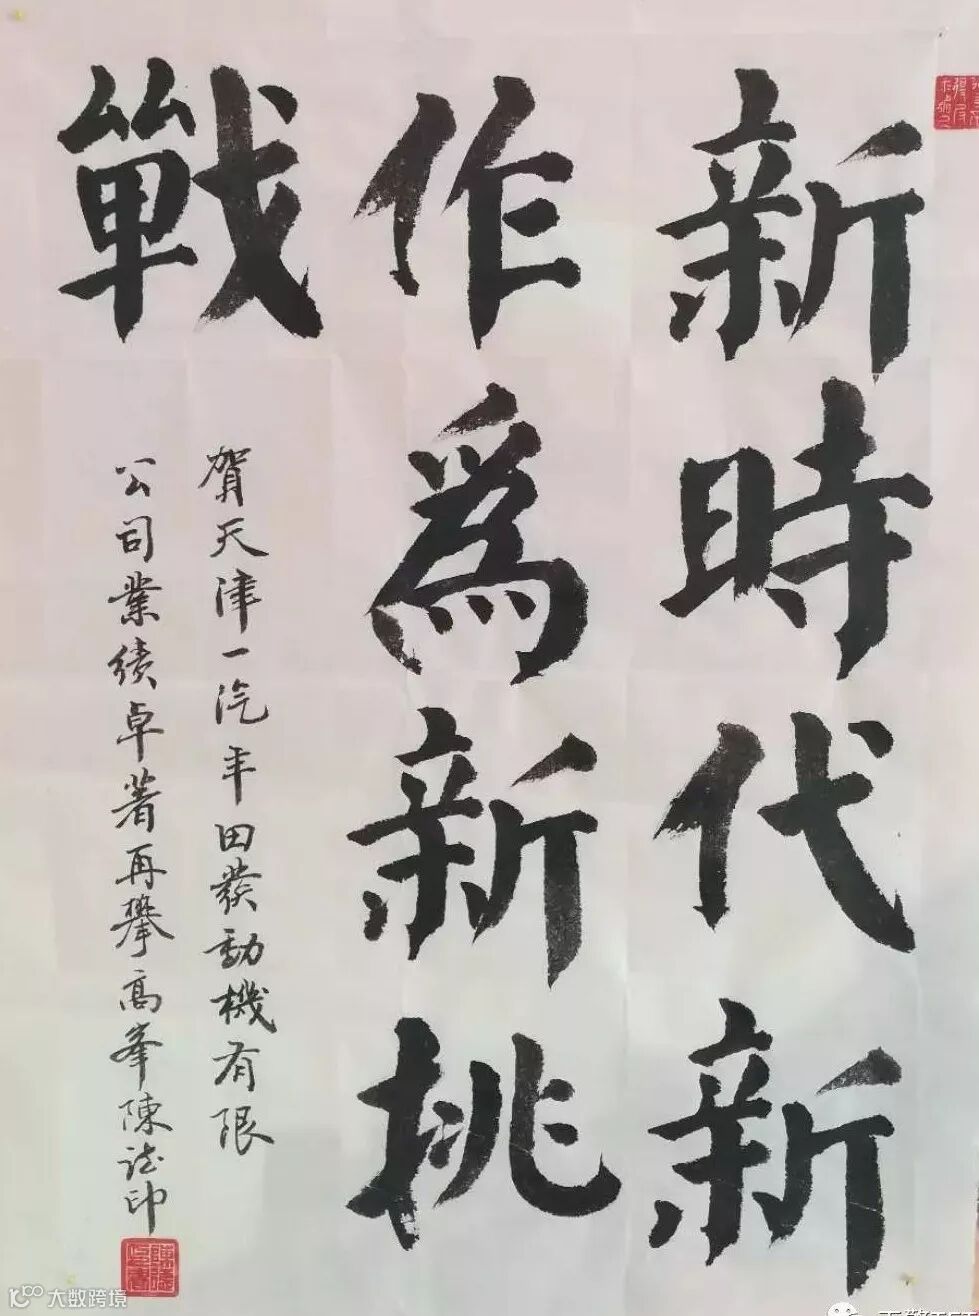 新時代新
作爲新挑
戰
賀天津一汽丰田發動機有限
公司業績卓著再攀高峯陳誌印
大数跨境